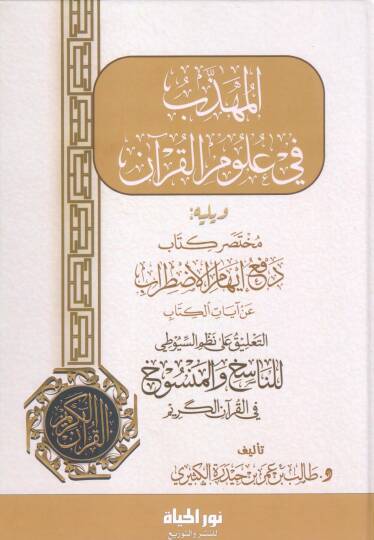 المُهَذَّبُ
فِي عُلُومِ القُرْآنِ
ويليه:
مُخْتَصَر كِتَاب
دَفْعِ إِيهَامِ الاضْطِرَابِ
عَنْ آيَاتِ الكِتَابِ
التَعْلِيق عَلَى نَظْمِ السُّيُوطِي
للنَّاسِخِ وَالمَنْسُوخِ
فِي القُرآنِ الكَرِيْمِ
القرآن الكريم
تأليف
د. طَالِب بن عُمَر بن حَيْدَرَة الكَثِيرِي
نور الحياة
للنشر والتوزيع